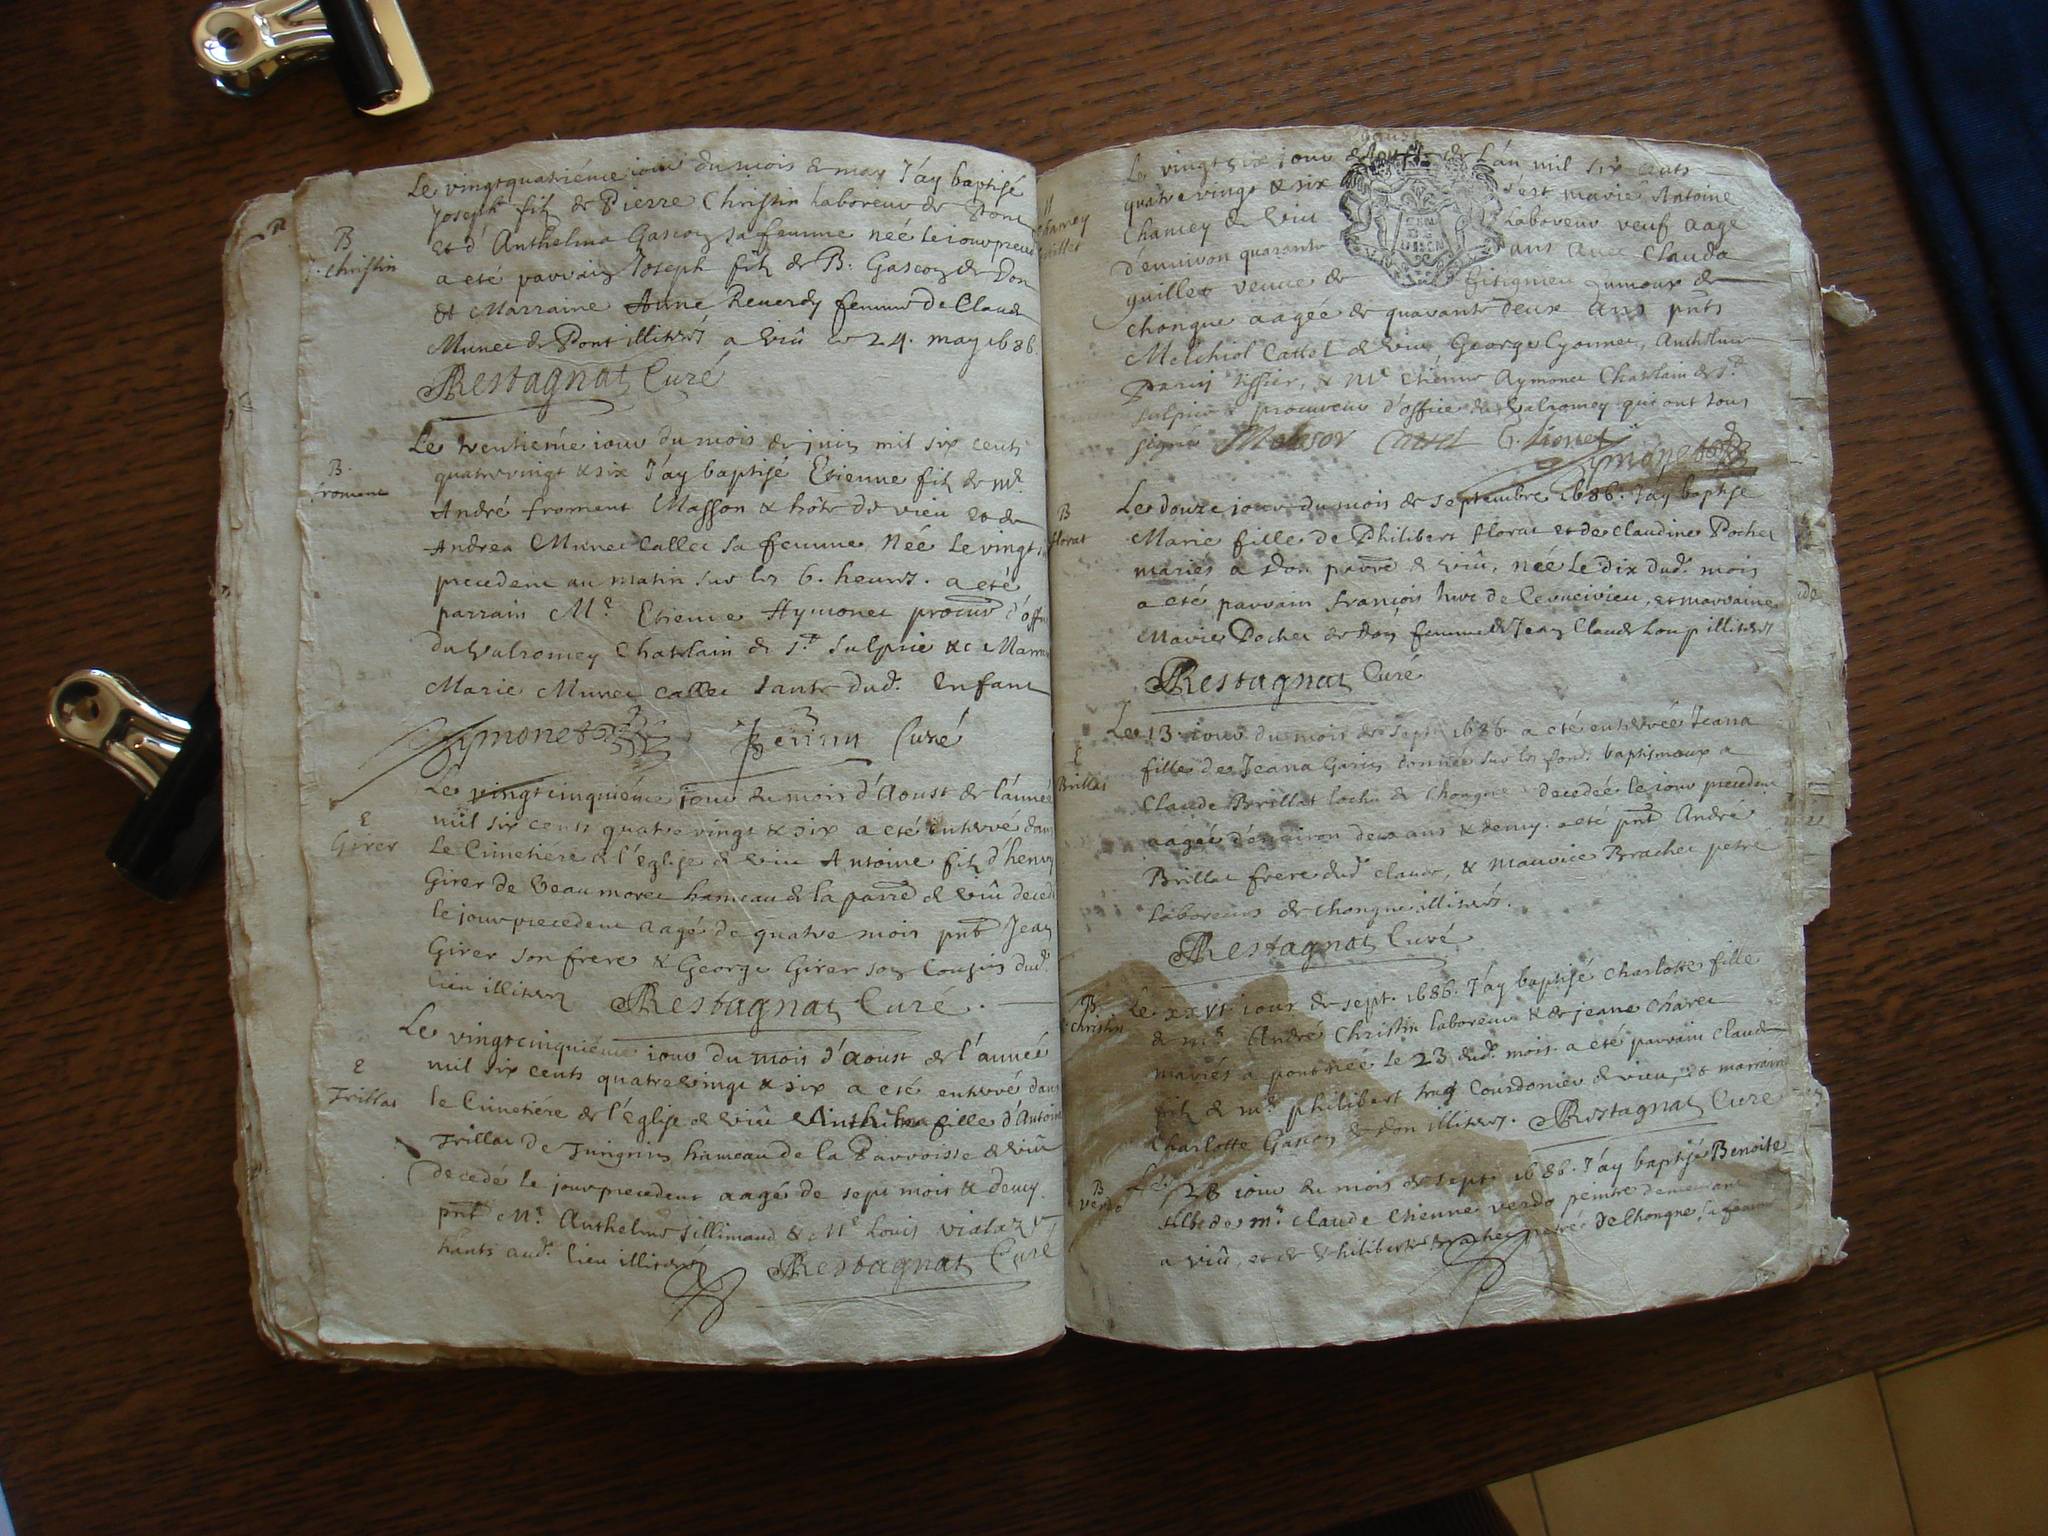 Le vingtquatriéme iour du mois de may J'ay baptisé
Joseph filz de Pierre Christin laboreur de Pont
et d'Anthelma Gascon sa femme née le iour preced
B
Christin
a eté parrain Joseph filz de B. Gascon de Don
et Marraine Anne Reuerdy femme de Claude
Munet de Pont illiterés a viû ce 24. may 1686.
Restagnat Curé
Le trentieme iour du mois de juin mil six cents
B.
froment
quatrevingt & six J'ay baptisé Etienne filz de mr.
André froment Masson & hôte de vieu et de
Andrea Munet Callet sa femme Née le vingt
precedent au matin sur les 6. heures. a eté
parrain Mr. Etienne Aymonet procur d'offi
du Valromey Chatelain de St. Sulpice &c Marr
Marie Munet callet tante dud. Enfant
Aymonet Curé
Le vingtcinquiéme iour du mois d'Aoust de l'année
E
Girer
mil six cents quatre vingt & six a eté enterré dans
Le Cimetiére de l'eglise de viu Antoine filz d'henry
Girer de hameau de la parre de viû decedé
le jour precedent aagé de quatre mois pnt Jean
Girer son frere & George Girer son Cousin dud.
lieu illiterez Restagnat Curé.
Le vingtcinquiéme iour du mois d'aoust de l'année
E
Trillat
mil six cents quatrevingt & six a eté enterré dans
le Cimetiére de l'Eglise de viû fille d'Antoine
Trillat de hameau de la Parroisse de viû
decedé le jour precedent aagé de sept mois & demy.
pnt Mr. Anthelme & Mr Louis
aud. lieu illiterés Restagnat Curé
Le vingt six iour de l'an mil six cents
quatre vingt & six s'est marié Antoine
Charvey de viu Laboreur veuf aagé
d'enuiron quarante ans auec Clauda
guillet veuue de
chongne aagée de quarante deux ans pnts
Melchiol Cattel de viu, George Lyonnet, Anthelme
& Mr Etienne Aymonet Chatelain de St.
sulpice & procureur d'office du Valromey qui ont tous
signés G. Lionet Aymonet
B
florat
Le douze iour du mois de septembre 1686. J'ay baptisé
Marie fille de Philibert florat et de Claudine Pochet
mariés a Don parre de viû, née le dix dud. mois
a eté parrain françois de et marraine
Marie Pochet de Don femme de Jean Claude illiterés
Restagnat Curé
Le 13. iour du mois de sept. 1686. a eté enterrée Jeana
E
Brillat
fille de Jeana Garin donnée sur les fonds baptismaux a
Claude Brillat de Chongne decedée le iour precedent
aagée d'enuiron deux ans & demy. a eté pnt André
Brillat frere dud. claude, & Maurice Brachet petré
Laboreurs de chongne illiterés.
Restagnat Curé
B
Christin
Le xxvi iour de sept. 1686. J'ay baptisé Charlotte fille
de mr. André Christin laboreur & de jeane
mariés a pont née le 23 dud. mois a eté parrain Claude
filz de mr. philibert Courdonier de vieu, et marraine
Charlotte Gascon de don illiterés. Restagnat Curé
B
verdo
Le 28 iour du mois de sept. 1686. J'ay baptisé Benoite
fille de mr. Claude Etienne verdo peintre demeurant
a viû, et de Philiberte Brachet petré de Chongne sa femme